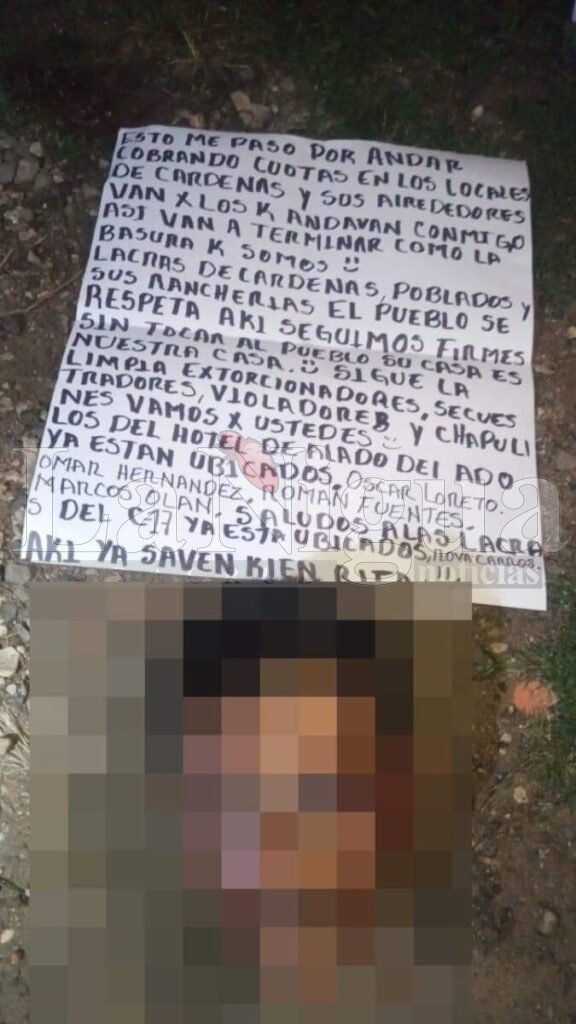 ESTO ME PASO POR ANDAR
COBRANDO CUOTAS EN LOS LOCALES
DE CARDENAS Y SUS AIREDEDORES
VAN X LOS K ANDAVAN CONMIGO
ASI VAN A TERMINAR COMO LA
BASURA K SOMOS
LACRAS DE CARDENAS, POBLADOS Y
SUS RANCHERIAS EL PUEBLO SE
RESPETA AKI SEGUIMOS FIRMES
SIN TOCAR AL PUEBLO SU CASA ES
NUESTRA CASA. SIGUE LA
LIMPIA EXTORCIONADORES, SECUES
TRADORES, VIOLADORES Y CHAPULI
NES VAMOS X USTEDES
LOS DEL HOTEL DE ALADO DEL ADO
YA ESTAN UBICADOS. OSCAR LORETO.
OMAR HERNANDEZ, ROMAN FUENTES.
MARCOS OLAN. SALUDOS A LAS LACRA
S DEL C-17 YA ESTA UBICADOS, ROVA CARROS.
AKI YA SAVEN KIEN
LaNigua
noticias